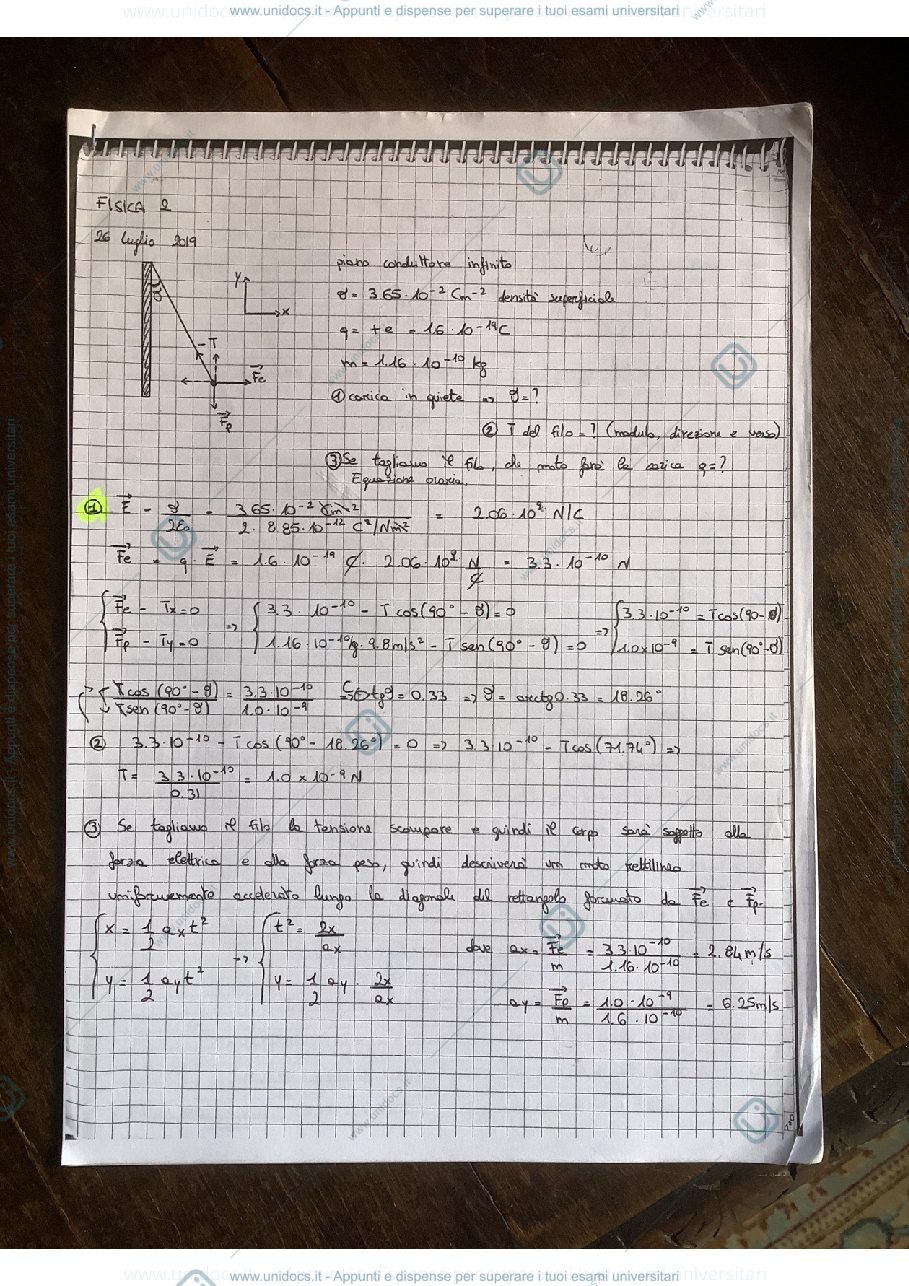 www.unidocs.it - Appunti e dispense per superare i tuoi esami universitari
FISICA 2
26 luglio 2019
piano conduttore infinito
σ = 3.65 · 10⁻² Cm⁻² densità superficiale
q = +e = 1.6 · 10⁻¹⁹ C
m = 1.16 · 10⁻¹⁰ kg
① carica in quiete => θ = ?
② T del filo = ? (modulo, direzione e verso)
③ Se tagliamo il filo, che moto farà la carica q = ?
Equazione oraria.
y
x
θ
-T
Fe
Fp
① E = σ/2ε₀ = 3.65 · 10⁻² C m⁻² / 2 · 8.85 · 10⁻¹² C²/Nm² = 2.06 · 10⁹ N/C
Fe = q · E = 1.6 · 10⁻¹⁹ C · 2.06 · 10⁹ N/C = 3.3 · 10⁻¹⁰ N
{ Fe - Tx = 0 => { 3.3 · 10⁻¹⁰ - T cos(90° - θ) = 0 => { 3.3 · 10⁻¹⁰ = T cos(90 - θ)
{ Fp - Ty = 0 { 1.16 · 10⁻¹⁰ kg · 9.8 m/s² - T sen(90° - θ) = 0 { 1.0 x 10⁻⁹ = T sen(90° - θ)
T cos(90° - θ) / T sen(90° - θ) = 3.3 · 10⁻¹⁰ / 1.0 · 10⁻⁹ tgθ = 0.33 => θ = arctg 0.33 = 18.26°
② 3.3 · 10⁻¹⁰ - T cos(90° - 18.26°) = 0 => 3.3 · 10⁻¹⁰ - T cos(71.74°) =>
T = 3.3 · 10⁻¹⁰ / 0.31 = 1.0 x 10⁻⁹ N
③ Se tagliamo il filo la tensione scompare e quindi il corpo sarà soggetto alla
forza elettrica e alla forza peso, quindi descriverà un moto rettilineo
uniformemente accelerato lungo la diagonale del rettangolo formato da Fe e Fp.
{ x = 1/2 ax t² => { t² = 2x/ax dove ax = Fe/m = 3.3 · 10⁻¹⁰ / 1.16 · 10⁻¹⁰ = 2.84 m/s
{ y = 1/2 ay t² { y = 1/2 ay · 2x/ax ay = Fp/m = 1.0 · 10⁻⁹ / 1.6 · 10⁻¹⁰ = 6.25 m/s
www.unidocs.it - Appunti e dispense per superare i tuoi esami universitari